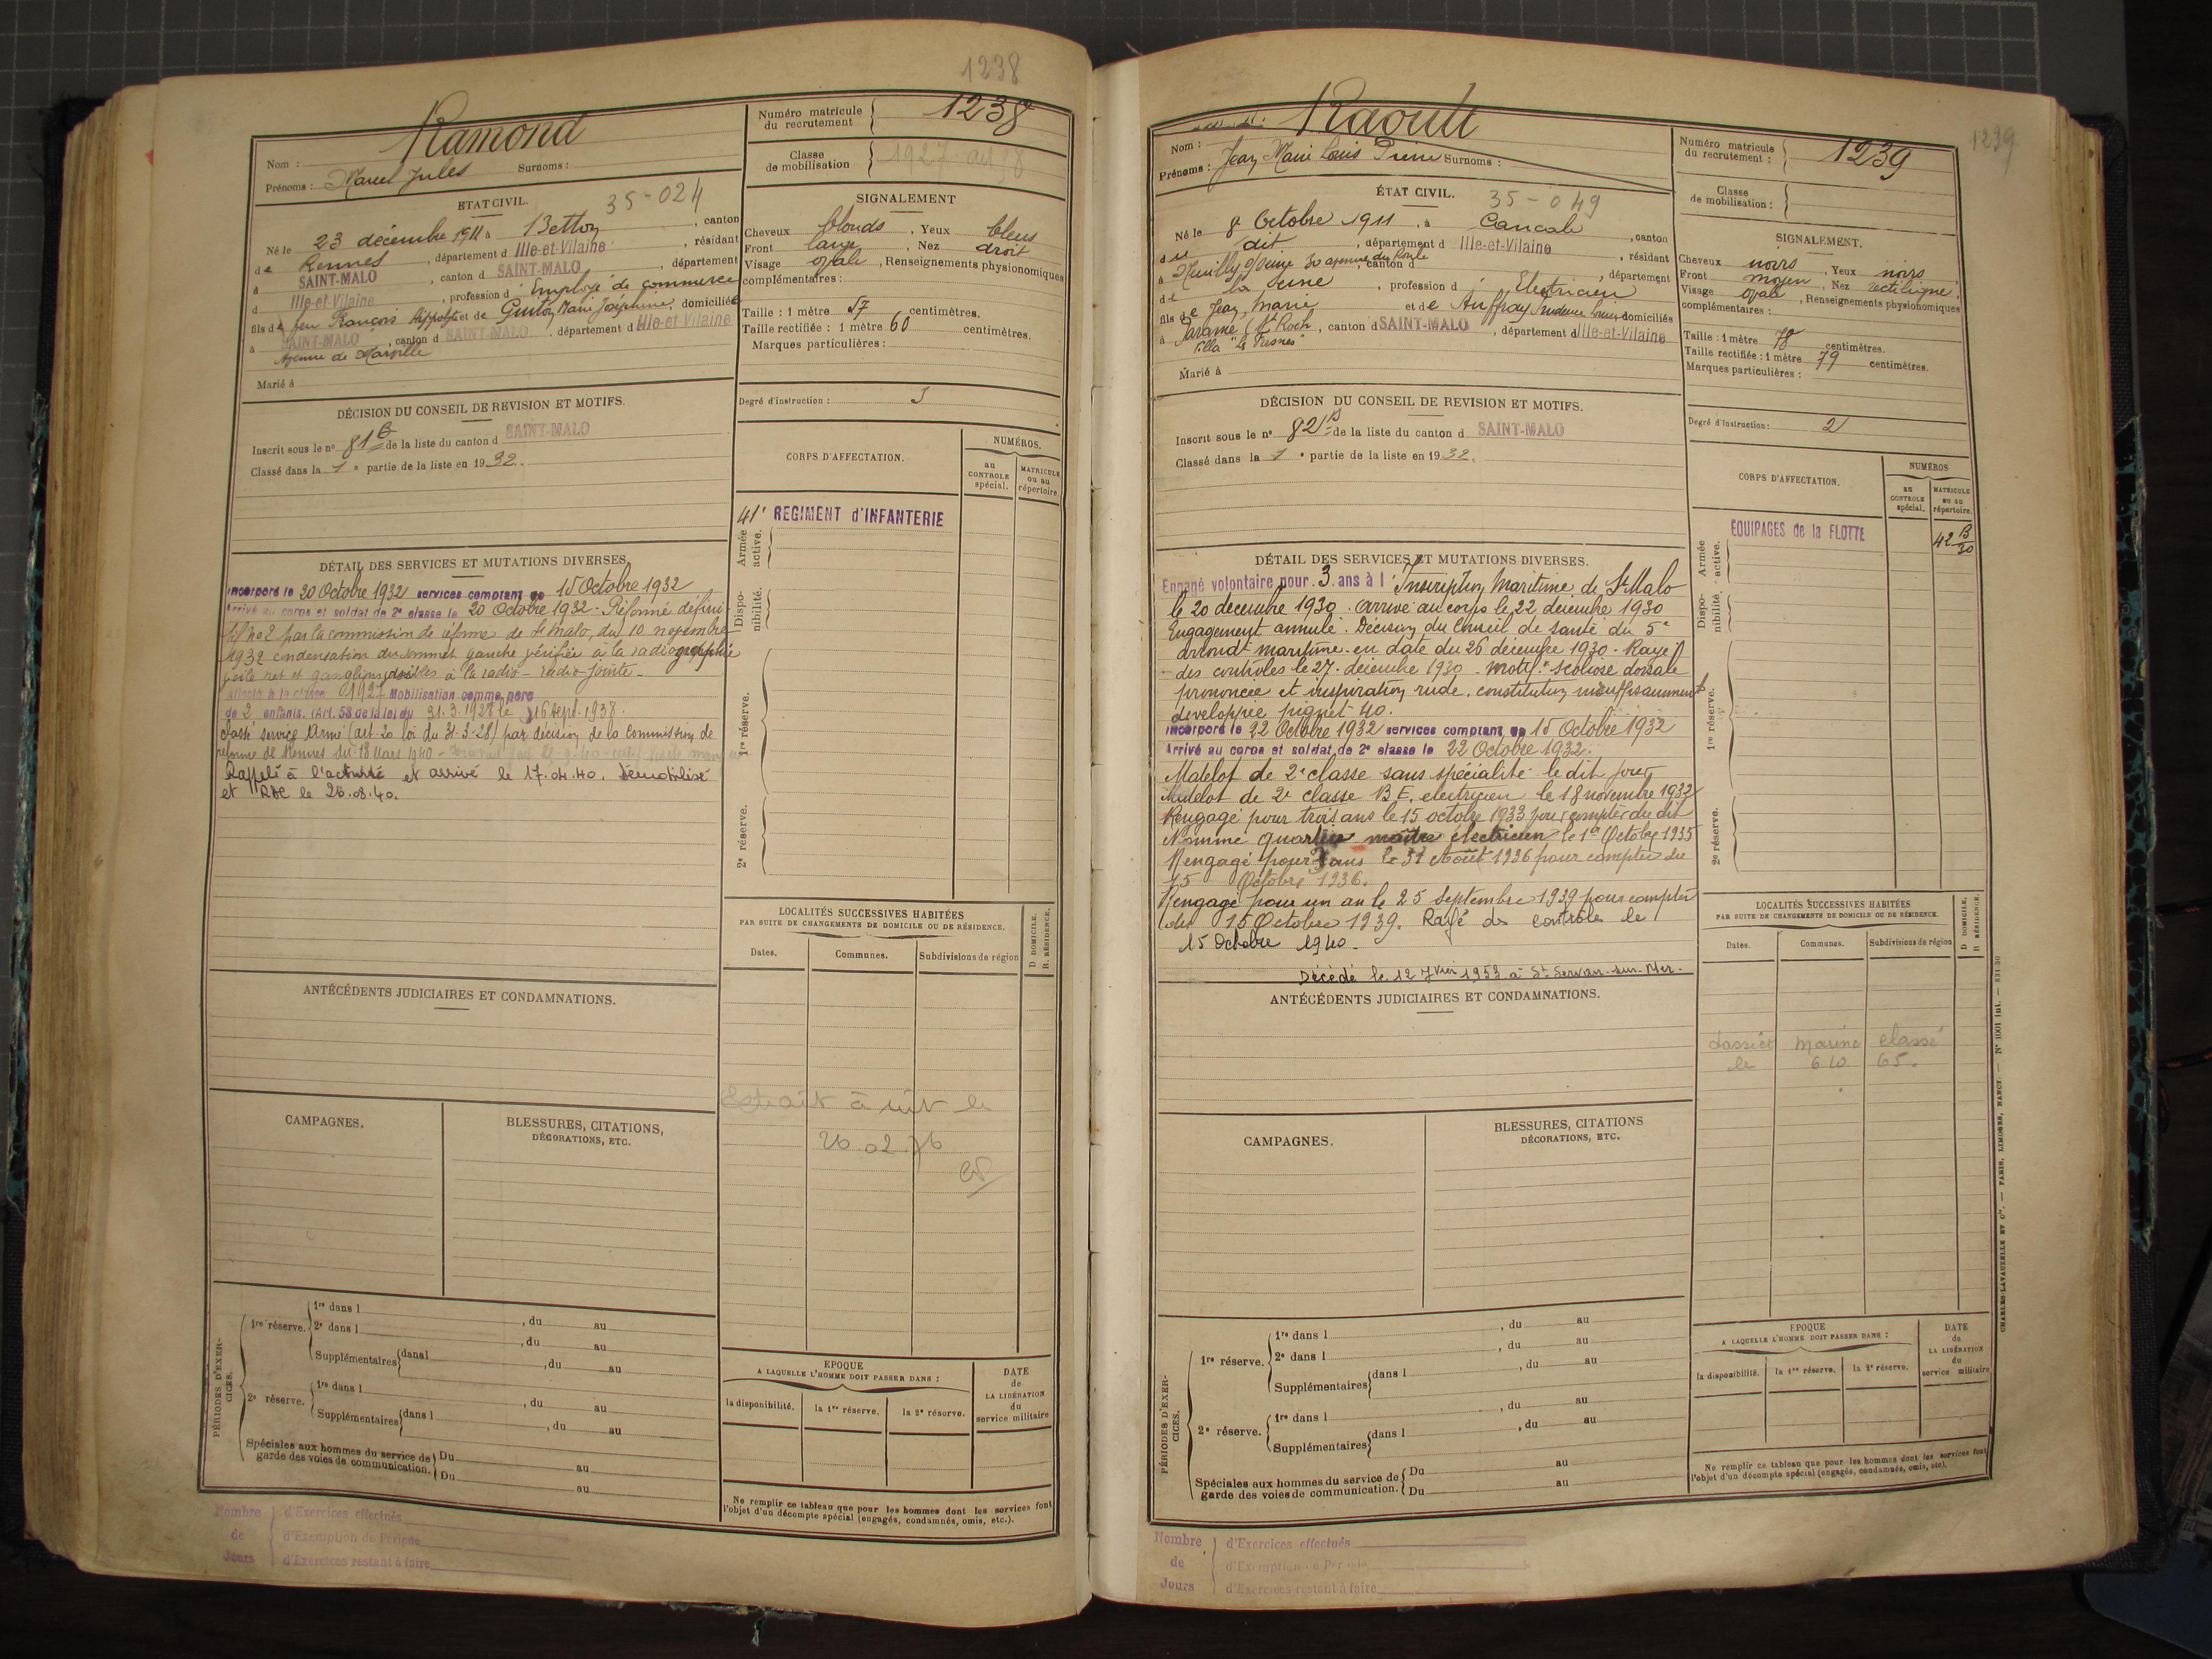 1238
Ramond
Nom :
Prénoms : Marcel Jules Surnoms :
Numéro matricule du recrutement 1238
Classe de mobilisation 1927
ETAT CIVIL.
35-024
Né le 23 décembre 1911 à Betton, canton
de Rennes, département d Ille-et-Vilaine, résidant
à SAINT-MALO, canton d SAINT-MALO, département
d Ille-et-Vilaine, profession d'Employé de commerce
fils de feu François Hippolyte et de Guiton Marie Joséphine, domiciliés
à SAINT-MALO, canton d SAINT-MALO, département d Ille-et-Vilaine
Avenue de Marville
Marié à
SIGNALEMENT
Cheveux blonds, Yeux bleus
Front large, Nez droit
Visage ovale, Renseignements physionomiques
complémentaires :
Taille : 1 mètre 57 centimètres.
Taille rectifiée : 1 mètre 60 centimètres.
Marques particulières :
Degré d'instruction : 3
DÉCISION DU CONSEIL DE REVISION ET MOTIFS.
Inscrit sous le nº 81 B de la liste du canton d SAINT-MALO
Classé dans la 1e partie de la liste en 1932.
CORPS D'AFFECTATION.
NUMÉROS.
au CONTROLE spécial.
MATRICULE ou au répertoire.
Armée active.
41e REGIMENT d'INFANTERIE
Dispo-nibilité.
1re réserve.
2e réserve.
DÉTAIL DES SERVICES ET MUTATIONS DIVERSES.
Incorporé le 20 Octobre 1932 services comptant du 15 Octobre 1932
Arrivé au corps et soldat de 2e classe le 20 Octobre 1932 - Réformé défini
tif nº 2 par la commission de réforme de St Malo, du 10 novembre
1932 condensation du sommet gauche vérifiée à la radiographie
voile net et ganglions visibles à la radio - radio jointe -
Affecté à la classe 1927 Mobilisation comme père
de 2 enfants. (Art. 58 de la loi du 31.3.1928 le 16 sept. 1938.
Classé service Armé (art 20 loi du 31-3-28) par décision de la Commission de
réforme de Rennes du 18 Mars 1940 -
Rappelé à l'activité et arrivé le 17.04.40. Démobilisé
et RDC le 26.08.40.
LOCALITÉS SUCCESSIVES HABITÉES
PAR SUITE DE CHANGEMENTS DE DOMICILE OU DE RÉSIDENCE.
Dates. Communes. Subdivisions de région
D. DOMICILE. R. RÉSIDENCE.
Extrait le
26.02.76
ANTÉCÉDENTS JUDICIAIRES ET CONDAMNATIONS.
CAMPAGNES.
BLESSURES, CITATIONS, DÉCORATIONS, ETC.
PÉRIODES D'EXER-CICES.
1re réserve. 1re dans l , du au
2e dans l , du au
Supplémentaires dans l , du au
2e réserve. 1re dans l , du au
Supplémentaires dans l , du au
Spéciales aux hommes du service de garde des voies de communication. Du au
Du au
EPOQUE
A LAQUELLE L'HOMME DOIT PASSER DANS :
la disponibilité. la 1re réserve. la 2e réserve.
DATE de LA LIBÉRATION du service militaire
Ne remplir ce tableau que pour les hommes dont les services font
l'objet d'un décompte spécial (engagés, condamnés, omis, etc.).
Nombre de Jours
d'Exercices effectués
d'Exemption de Période
d'Exercices restant à faire
1239
Raoult
Nom :
Prénoms : Jean Marie Louis Pierre Surnoms :
Numéro matricule du recrutement : 1239
Classe de mobilisation :
ÉTAT CIVIL.
35-049
Né le 8 Octobre 1911, à Cancale, canton
du dit, département d Ille-et-Vilaine, résidant
à Neuilly s/Seine 30 avenue du Roule, canton d , département
de la Seine, profession d'Electricien
fils de Jean, Marie et de Auffray Prudence Louise domiciliés
à Paramé (St Roch, canton d SAINT-MALO, département d Ille-et-Vilaine
Villa "Les Fresnes"
Marié à
SIGNALEMENT.
Cheveux noirs, Yeux noirs
Front moyen, Nez rectiligne.
Visage ovale, Renseignements physionomiques
complémentaires :
Taille : 1 mètre 78 centimètres.
Taille rectifiée : 1 mètre 79 centimètres.
Marques particulières :
Degré d'instruction : 2
DÉCISION DU CONSEIL DE REVISION ET MOTIFS.
Inscrit sous le nº 82 B de la liste du canton d SAINT-MALO
Classé dans la 1e partie de la liste en 1932.
CORPS D'AFFECTATION.
NUMÉROS
au CONTROLE spécial.
MATRICULE ou au répertoire.
Armée active.
EQUIPAGES de la FLOTTE
42 B 30
Dispo-nibilité.
1re réserve.
2e réserve.
DÉTAIL DES SERVICES ET MUTATIONS DIVERSES.
Engagé volontaire pour 3 ans à l'Inscription Maritime de St Malo
le 20 décembre 1930. arrivé au corps le 22 décembre 1930
Engagement annulé. Décision du Conseil de santé du 5e
arrondt maritime en date du 26 décembre 1930. Rayé
des contrôles le 27 décembre 1930 - Motif : scoliose dorsale
prononcée et inspiration rude, constitution insuffisamment
développée pignet 40.
Incorporé le 22 Octobre 1932 services comptant du 15 Octobre 1932
Arrivé au corps et soldat de 2e classe le 22 Octobre 1932.
Matelot de 2e classe sans spécialité le dit jour
Matelot de 2e classe B.E. electricien le 18 novembre 1932
Rengagé pour trois ans le 15 octobre 1933 pour compter du dit
Nommé quartier maître électricien le 1er Octobre 1935
Rengagé pour 3 ans le 31 Août 1936 pour compter du
15 Octobre 1936.
Rengagé pour un an le 25 septembre 1939 pour compter
du 15 Octobre 1939. Rayé des contrôles le
15 Octobre 1940.
Décédé le 12 Jvier 1953 à St Servan-sur-Mer.
LOCALITÉS SUCCESSIVES HABITÉES
PAR SUITE DE CHANGEMENTS DE DOMICILE OU DE RÉSIDENCE.
Dates. Communes. Subdivisions de région
D. DOMICILE. R. RÉSIDENCE.
dossier marine classé
le 6 10 65.
ANTÉCÉDENTS JUDICIAIRES ET CONDAMNATIONS.
CAMPAGNES.
BLESSURES, CITATIONS DÉCORATIONS, ETC.
PÉRIODES D'EXER-CICES.
1re réserve. 1re dans l , du au
2e dans l , du au
Supplémentaires dans l , du au
2e réserve. 1re dans l , du au
Supplémentaires dans l , du au
Spéciales aux hommes du service de garde des voies de communication. Du au
Du au
EPOQUE
A LAQUELLE L'HOMME DOIT PASSER DANS :
la disponibilité. la 1re réserve. la 2e réserve.
DATE de LA LIBÉRATION du service militaire
Ne remplir ce tableau que pour les hommes dont les services font
l'objet d'un décompte spécial (engagés, condamnés, omis, etc.).
CHARLES-LAVAUZELLE ET Cie. — PARIS, LIMOGES, NANCY. — Nº 1001 int. — 831-30
Nombre de Jours
d'Exercices effectués
d'Exemption de Période
d'Exercices restant à faire